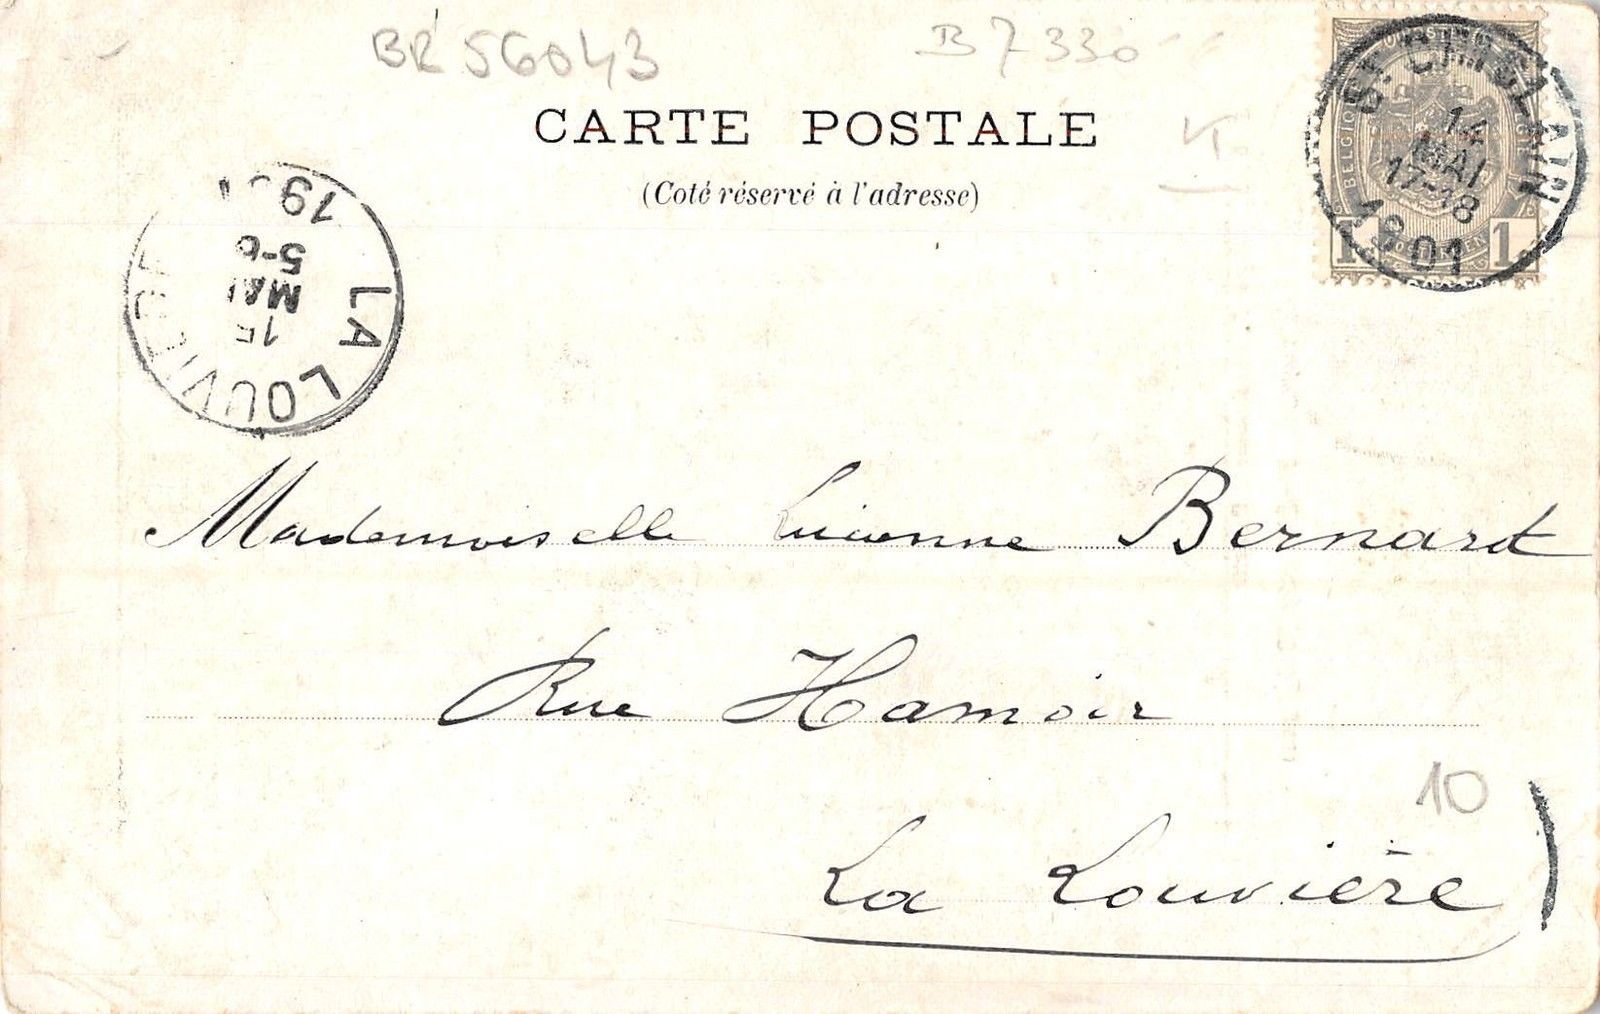 BR 56043
B7330
CARTE POSTALE
(Coté réservé à l'adresse)
ST GHISLAIN
14
MAI
17-18
1901
BELGIQUE
1 1
LA LOUVIÈRE
15
MAI
5-6
1901
Mademoiselle Lucienne Bernard
Rue Hamoir
10
La Louvière